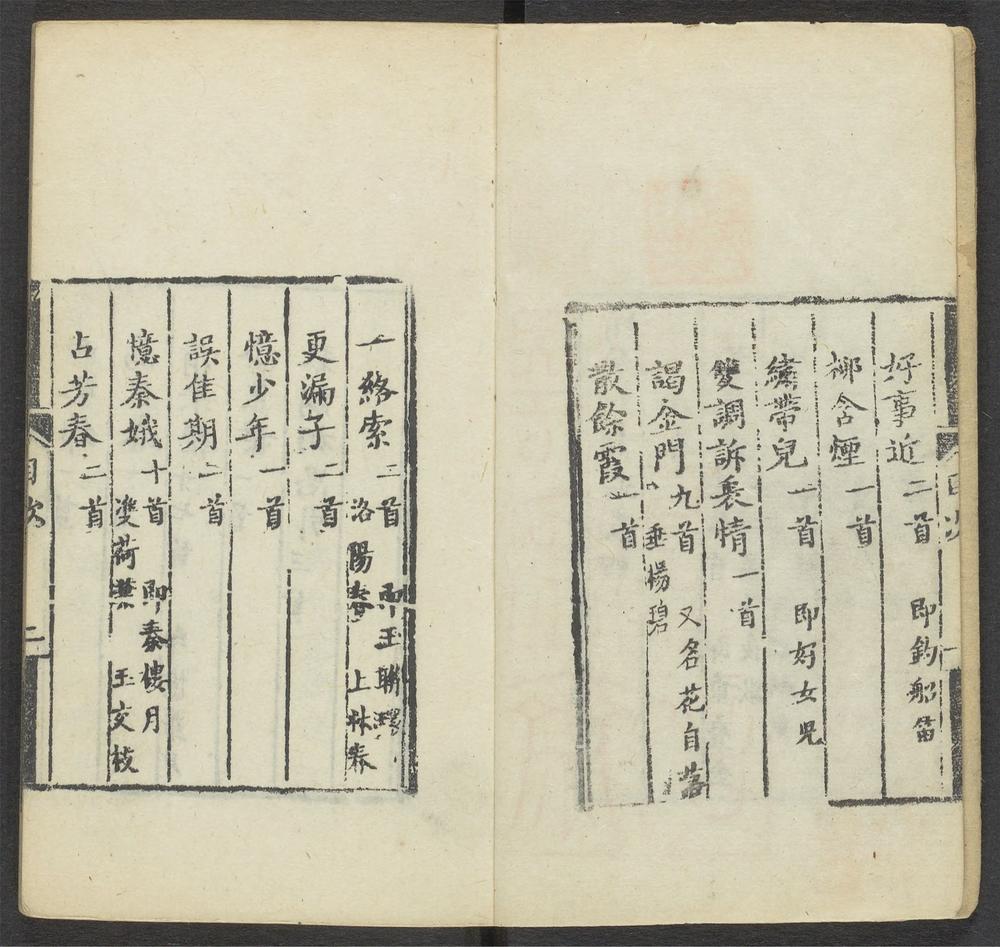 好事近二首 即釣船笛
柳含煙一首
繡帶兒一首 即好女兒
雙調訴衷情一首
謁金門九首 又名花自落 垂楊碧
散餘霞一首
一絡索二首 即玉聯環 洛陽春 上林春
更漏子二首
憶少年一首
誤佳期二首
憶秦娥十首 即秦樓月 雙荷葉 玉交枝
占芳春二首
目次 二